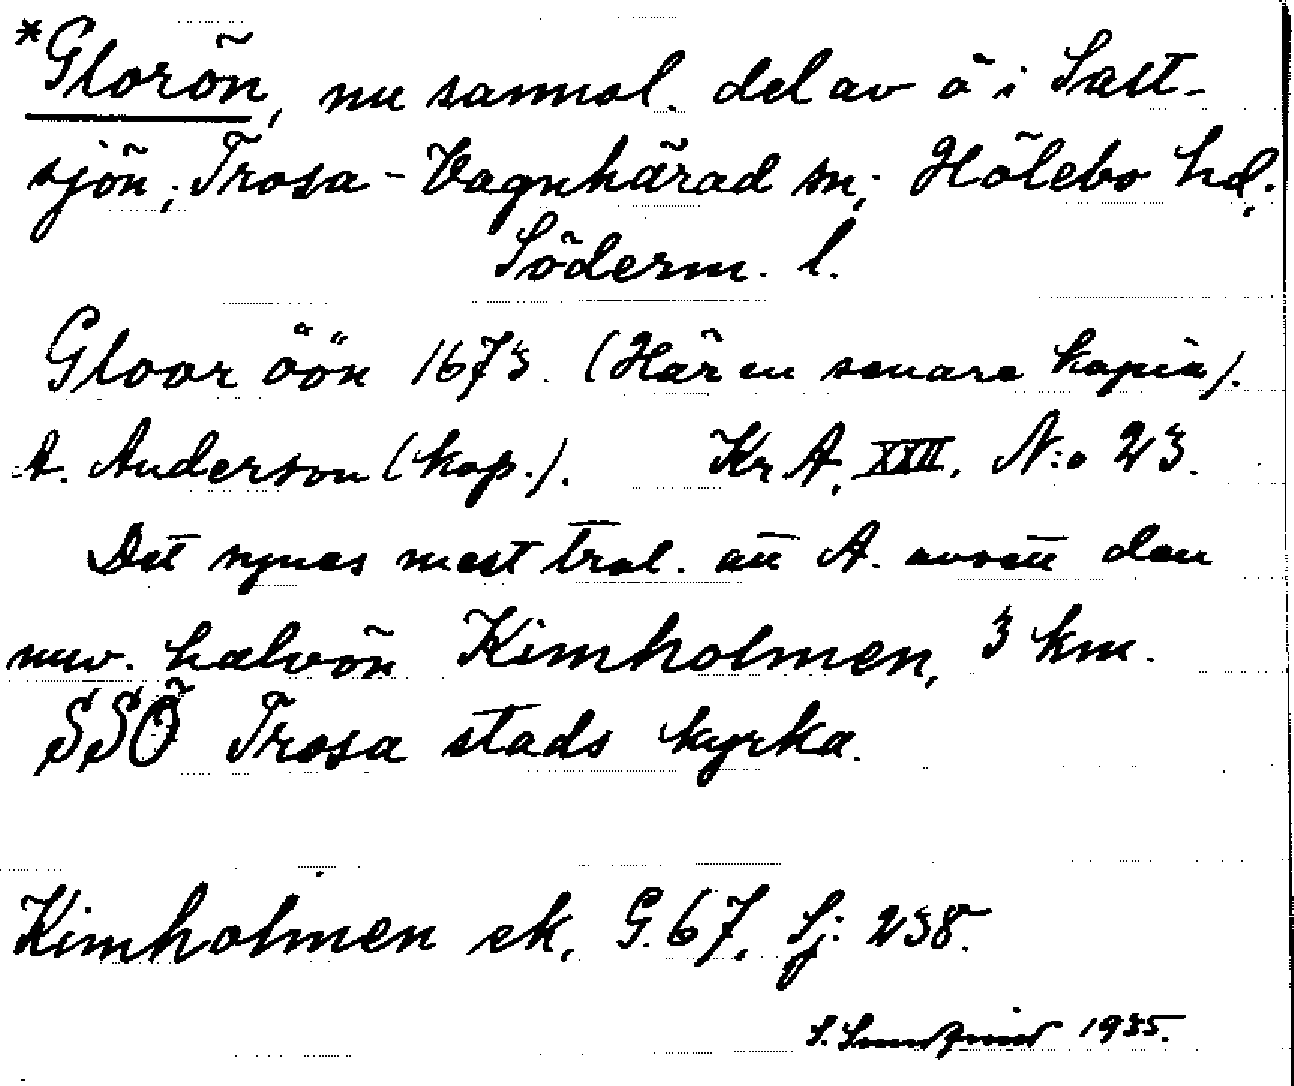 *Glorön, nu sannol. del av ö i Salt-
sjön, Trosa-Vagnhärad sn, Hölebo hd,
Söderm. l.
Gloor öön 1673. (Här en senare kopia).
A. Anderson (kop.). Kr A, XXII. N:o 23.
Det synes mest trol. att A. avsett den
nuv. halvön Kimholmen, 3 km.
SSÖ Trosa stads kyrka.
Kimholmen ek. G. 67, Sj: 238.
S. 1935.